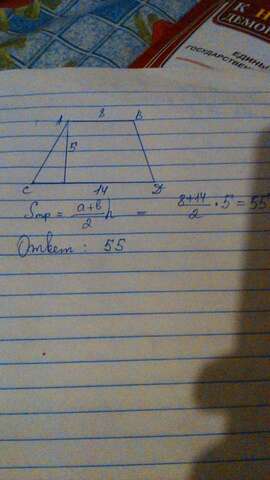 К
ДЕМО
ЕДИНЫ
ГОСУДАРСТВЕН
A 8 B
5
C 14 D
Sтр = a+b/2 h = 8+14/2 • 5 = 55
Ответ: 55